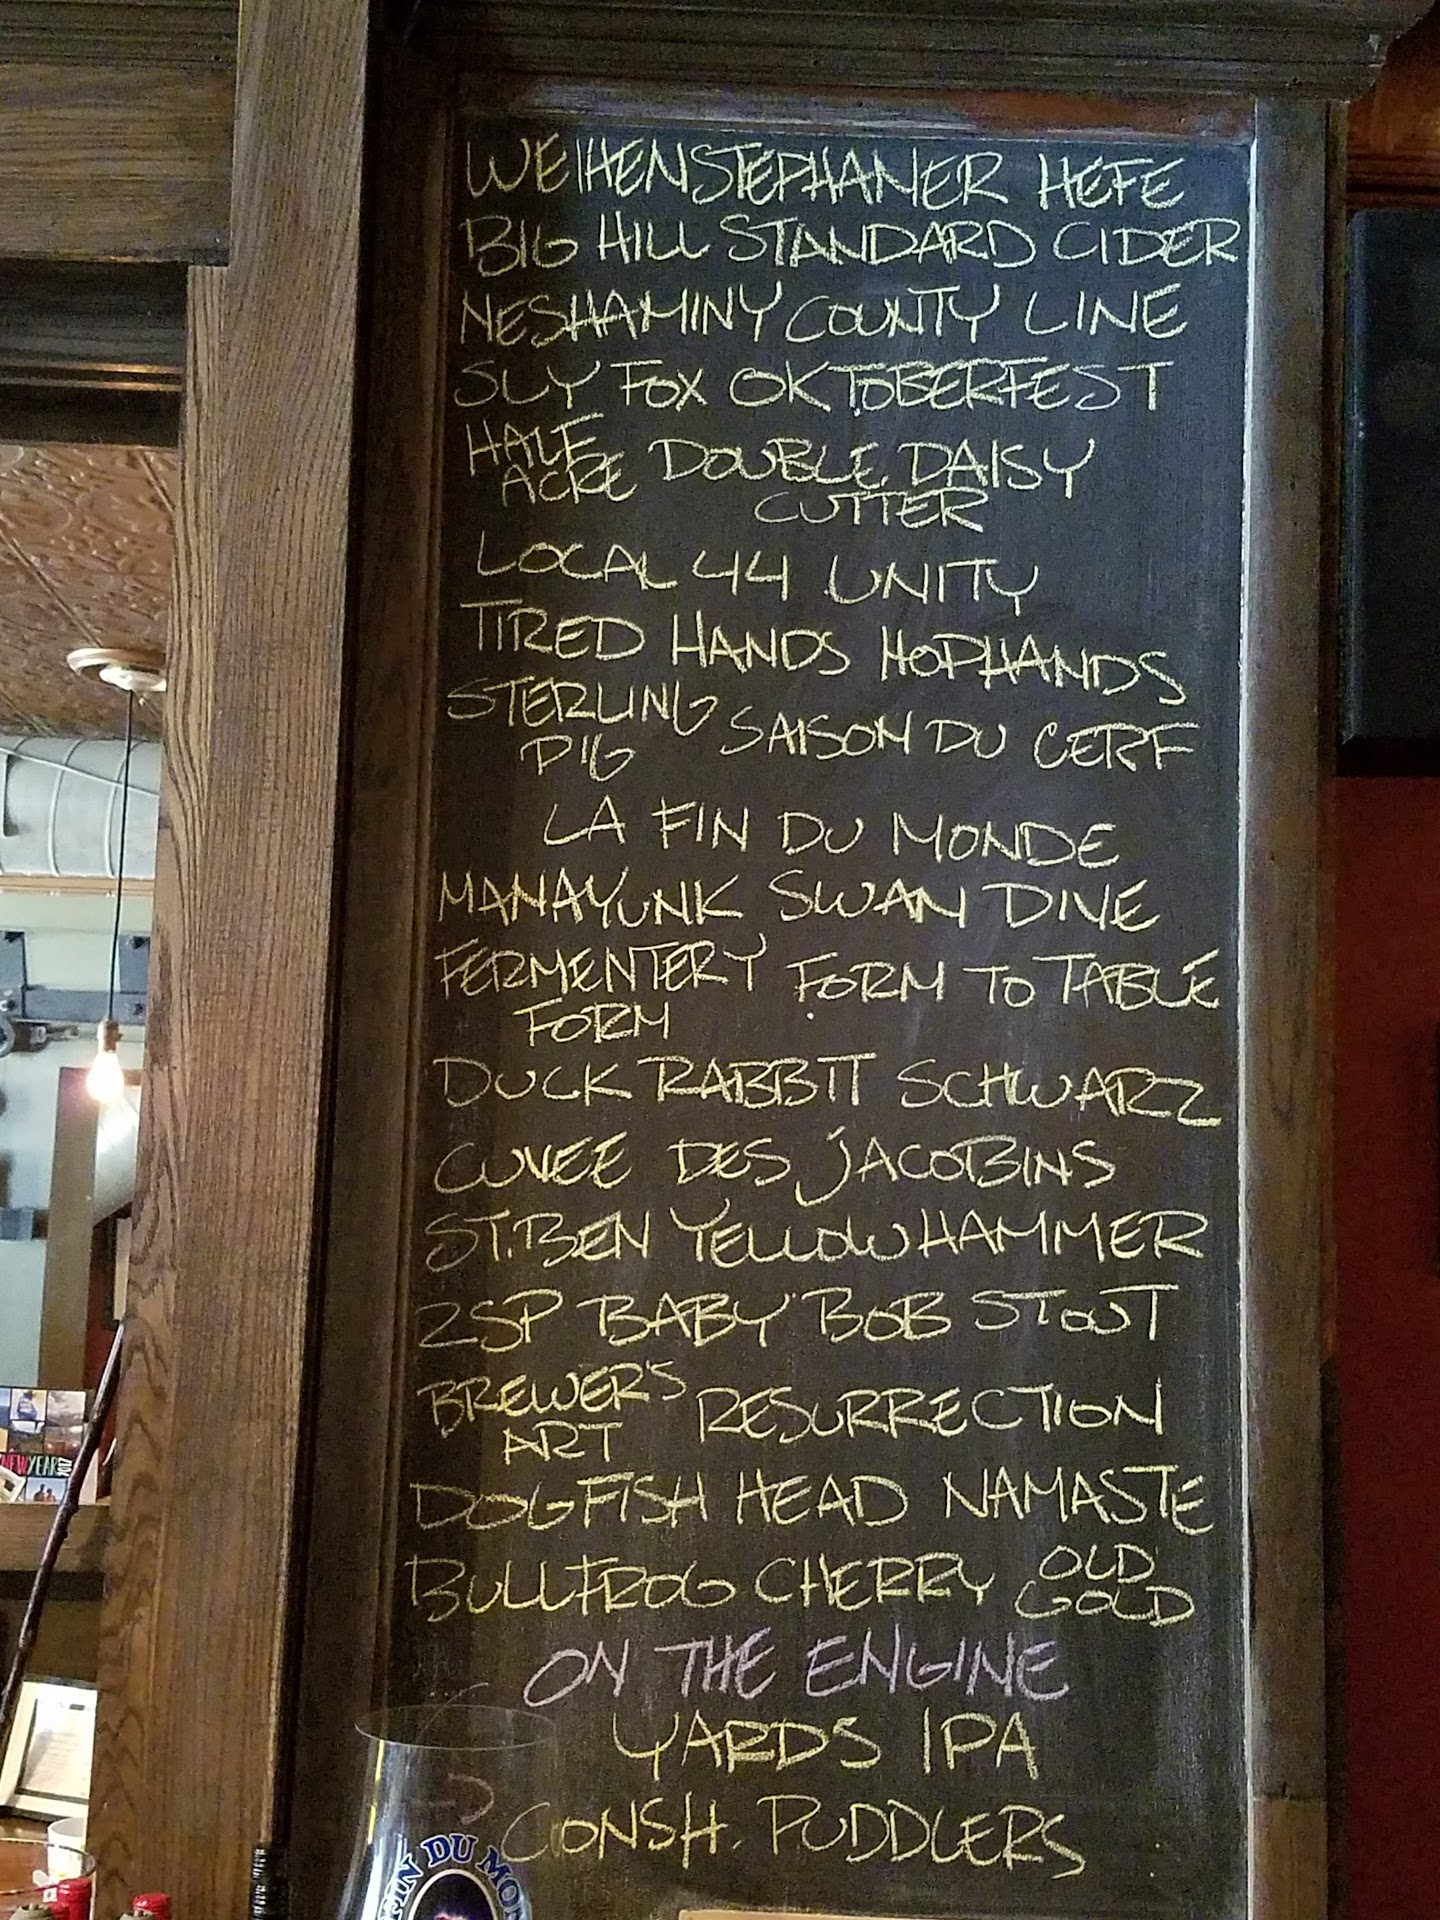 WEIHENSTEPHANER HEFE
BIG HILL STANDARD CIDER
NESHAMINY COUNTY LINE
SLY FOX OKTOBERFEST
HALF
ACRE DOUBLE DAISY
CUTTER
LOCAL 44 UNITY
TIRED HANDS HOPHANDS
STERLING
PIG SAISON DU CERF
LA FIN DU MONDE
MANAYUNK SWAN DIVE
FERMENTERY FORM TO TABLE
FORM
DUCK RABBIT SCHWARZ
CUVEE DES JACOBINS
ST. BEN YELLOWHAMMER
2SP BABY BOB STOUT
BREWER'S
ART RESURRECTION
DOGFISH HEAD NAMASTE
BULLFROG CHERRY OLD
GOLD
ON THE ENGINE
YARDS IPA
CONSH. PUDDLERS
FIN DU MON
NEW YEAR 2017